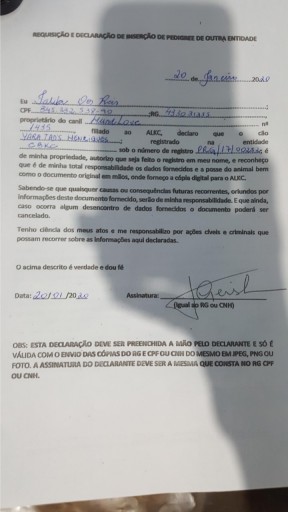 REQUISIÇÃO E DECLARAÇÃO DE INSERÇÃO DE PEDIGREE DE OUTRA ENTIDADE
20 de Janeiro 2020
Eu dos Reis
CPF RG
proprietário do canil nº
1455 filiado ao ALKC, declaro que o cão
HENRIQUES registrado na entidade
CBKC sob o número de registro é
de minha propriedade, autorizo que seja feito o registro em meu nome, e reconheço
que é de minha total responsabilidade os dados fornecidos e a posse do animal bem
como o documento original em mãos, onde forneço a cópia digital para o ALKC.
Sabendo-se que quaisquer causas ou consequências futuras recorrentes, oriundos por
informações deste documento fornecido, serão de minha responsabilidade. E que ainda,
caso ocorra algum desencontro de dados fornecidos o documento poderá ser
cancelado.
Tenho ciência dos meus atos e me responsabilizo por ações cíveis e criminais que
possam recorrer sobre as informações aqui declaradas.
O acima descrito é verdade e dou fé
Data: 20/01/2020 Assinatura:
(Igual ao RG ou CNH)
OBS: ESTA DECLARAÇÃO DEVE SER PREENCHIDA A MÃO PELO DECLARANTE E SÓ É
VÁLIDA COM O ENVIO DAS CÓPIAS DO RG E CPF OU CNH DO MESMO EM JPEG, PNG OU
FOTO. A ASSINATURA DO DECLARANTE DEVE SER A MESMA QUE CONSTA NO RG CPF
OU CNH.